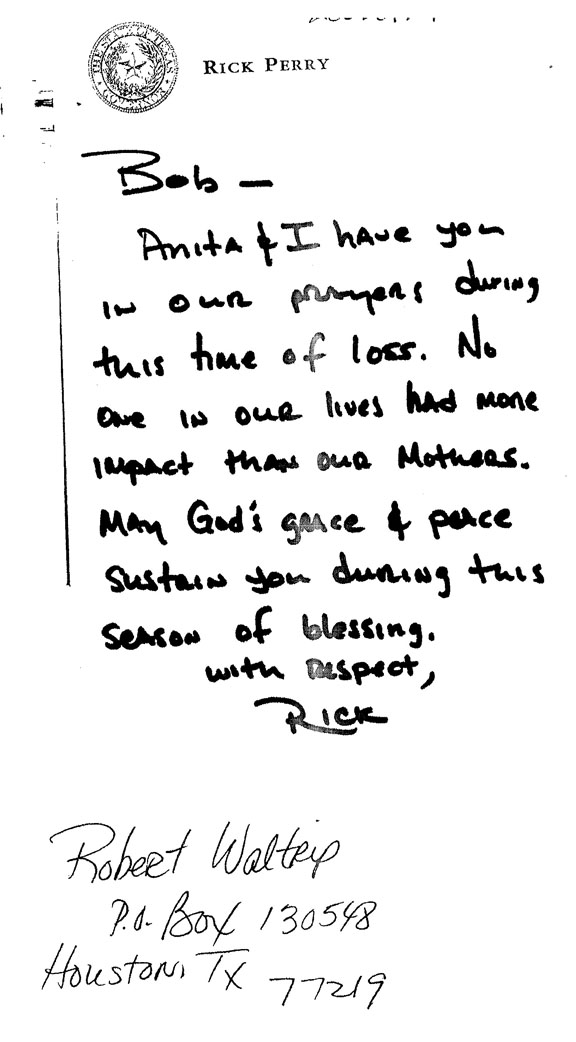 THE STATE OF TEXAS
GOVERNOR
RICK PERRY
Bob –
Anita & I have you
in our prayers during
this time of loss. No
one in our lives had more
impact than our Mothers.
May God's grace & peace
sustain you during this
season of blessing.
with respect,
Rick
Robert Waltrip
P.O. Box 130548
Houston, TX
77219